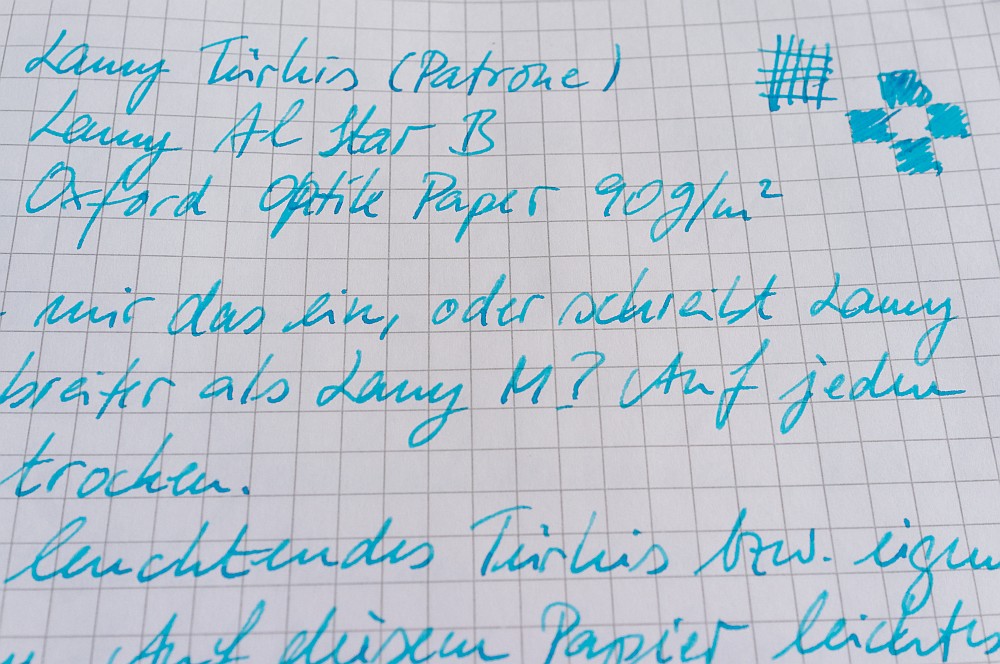 Lamy Türkis (Patrone)
Lamy Al Star B
Oxford Optik Paper 90g/m²
mir das ein, oder schreibt Lamy
breiter als Lamy M? Auf jeden
trocken.
leuchtendes Türkis bzw. eigen
Auf diesem Papier leichtes